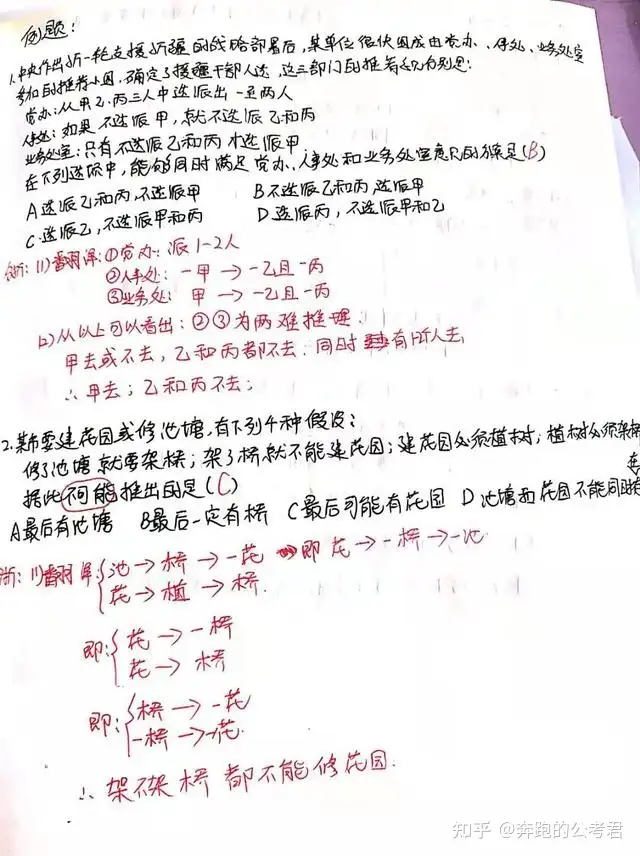 例题:
1.中央作出新一轮支援新疆的战略部署后,某单位很快组成由党办、人事处、业务处室
参加的推荐小组,确定了援疆干部人选,这三部门的推荐意见分别是:
党办:从甲乙、丙三人中选派出一至两人
人事处:如果不选派甲,就不选派乙和丙
业务处室:只有不选派乙和丙才选派甲
在下列选项中,能够同时满足党办、人事处和业务处室意见的方案是(B)
A选派乙和丙,不选派甲 B不选派乙和丙,选派甲
C.选派乙,不选派甲和丙 D选派丙,不选派甲和乙
解:(1)翻译:①党办:派1-2人
②人事处:一甲→一乙且一丙
③业务处:甲→一乙且一丙
(2)从以上可以看出:②③为两难推理
甲去或不去,乙和丙都不去.同时有所人去,
∴甲去;乙和丙不去;
2.某市要建花园或修池塘,有下列4种假设:
修了池塘就要架桥;架了桥就不能建花园;建花园必须植树;植树必须架桥
据此不可能推出的是(C)
A最后有池塘 B最后一定有桥 C最后可能有花园 D池塘和花园不能同时有
解:(1)翻译:{池→桥→-花 即花→-桥→-池
花→植→桥.
即:{花→-桥
花→桥
即:{桥→-花
-桥→-花.
∴架不架桥都不能修花园.
知乎 @奔跑的公考君